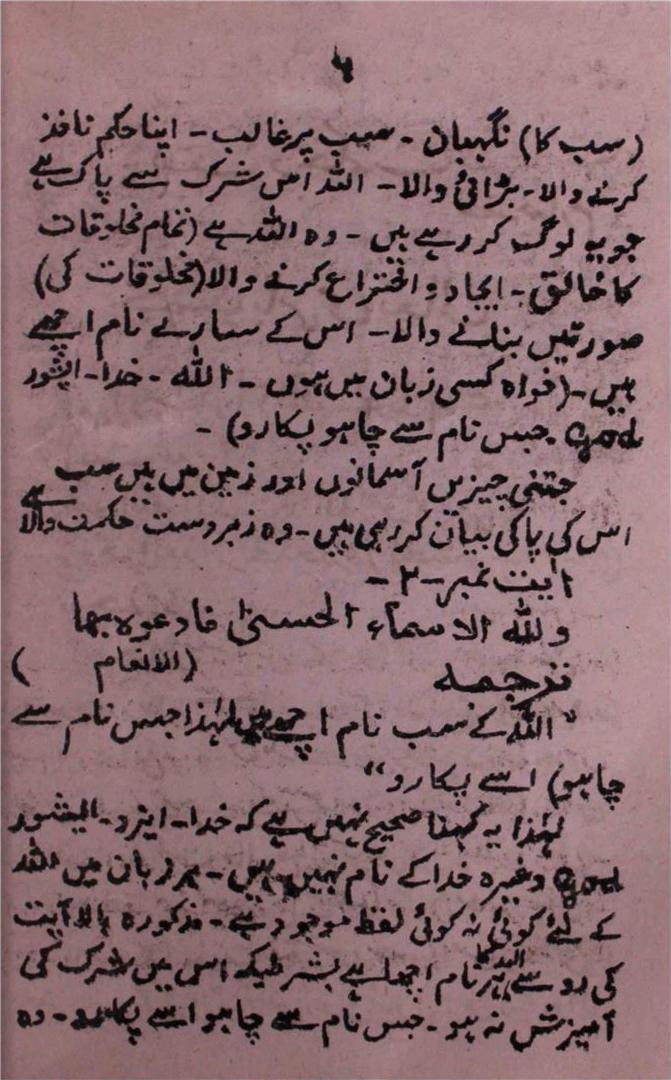 ۶
(سب کا) نگہبان - سب پر غالب - اپنا حکم نافذ
کرنے والا - بڑائی والا - اللہ اس شرک سے پاک ہے
جو یہ لوگ کر رہے ہیں - وہ اللہ ہے (تمام مخلوقات
کا خالق - ایجاد و اختراع کرنے والا (مخلوقات کی)
صورتیں بنانے والا - اس کے سارے نام اچھے
ہیں - (خواہ کسی زبان میں ہوں - اللہ - خدا - ایشور
God - جس نام سے چاہو پکارو) -
جتنی چیزیں آسمانوں اور زمین میں ہیں سب
اس کی پاکی بیان کر رہی ہیں - وہ زبردست حکمت والا ہے
آیت نمبر - ۲ -
وللہ الاسماء الحسنیٰ فادعوہ بھا
(الانعام )
ترجمہ
"اللہ کے سب نام اچھے ہیں لہٰذا جس نام سے
چاہو) اسے پکارو"
لہٰذا یہ کہنا صحیح نہیں ہے کہ خدا - ایزد - ایشور
God وغیرہ خدا کے نام نہیں ہیں - ہر زبان میں اللہ
کے لئے کوئی نہ کوئی لفظ موجود ہے - مذکورہ بالا آیت
کی رو سے اللہ کا ہر نام اچھا ہے بشرطیکہ اس میں شرک کی
آمیزش نہ ہو - جس نام سے چاہو اسے پکارو - وہ